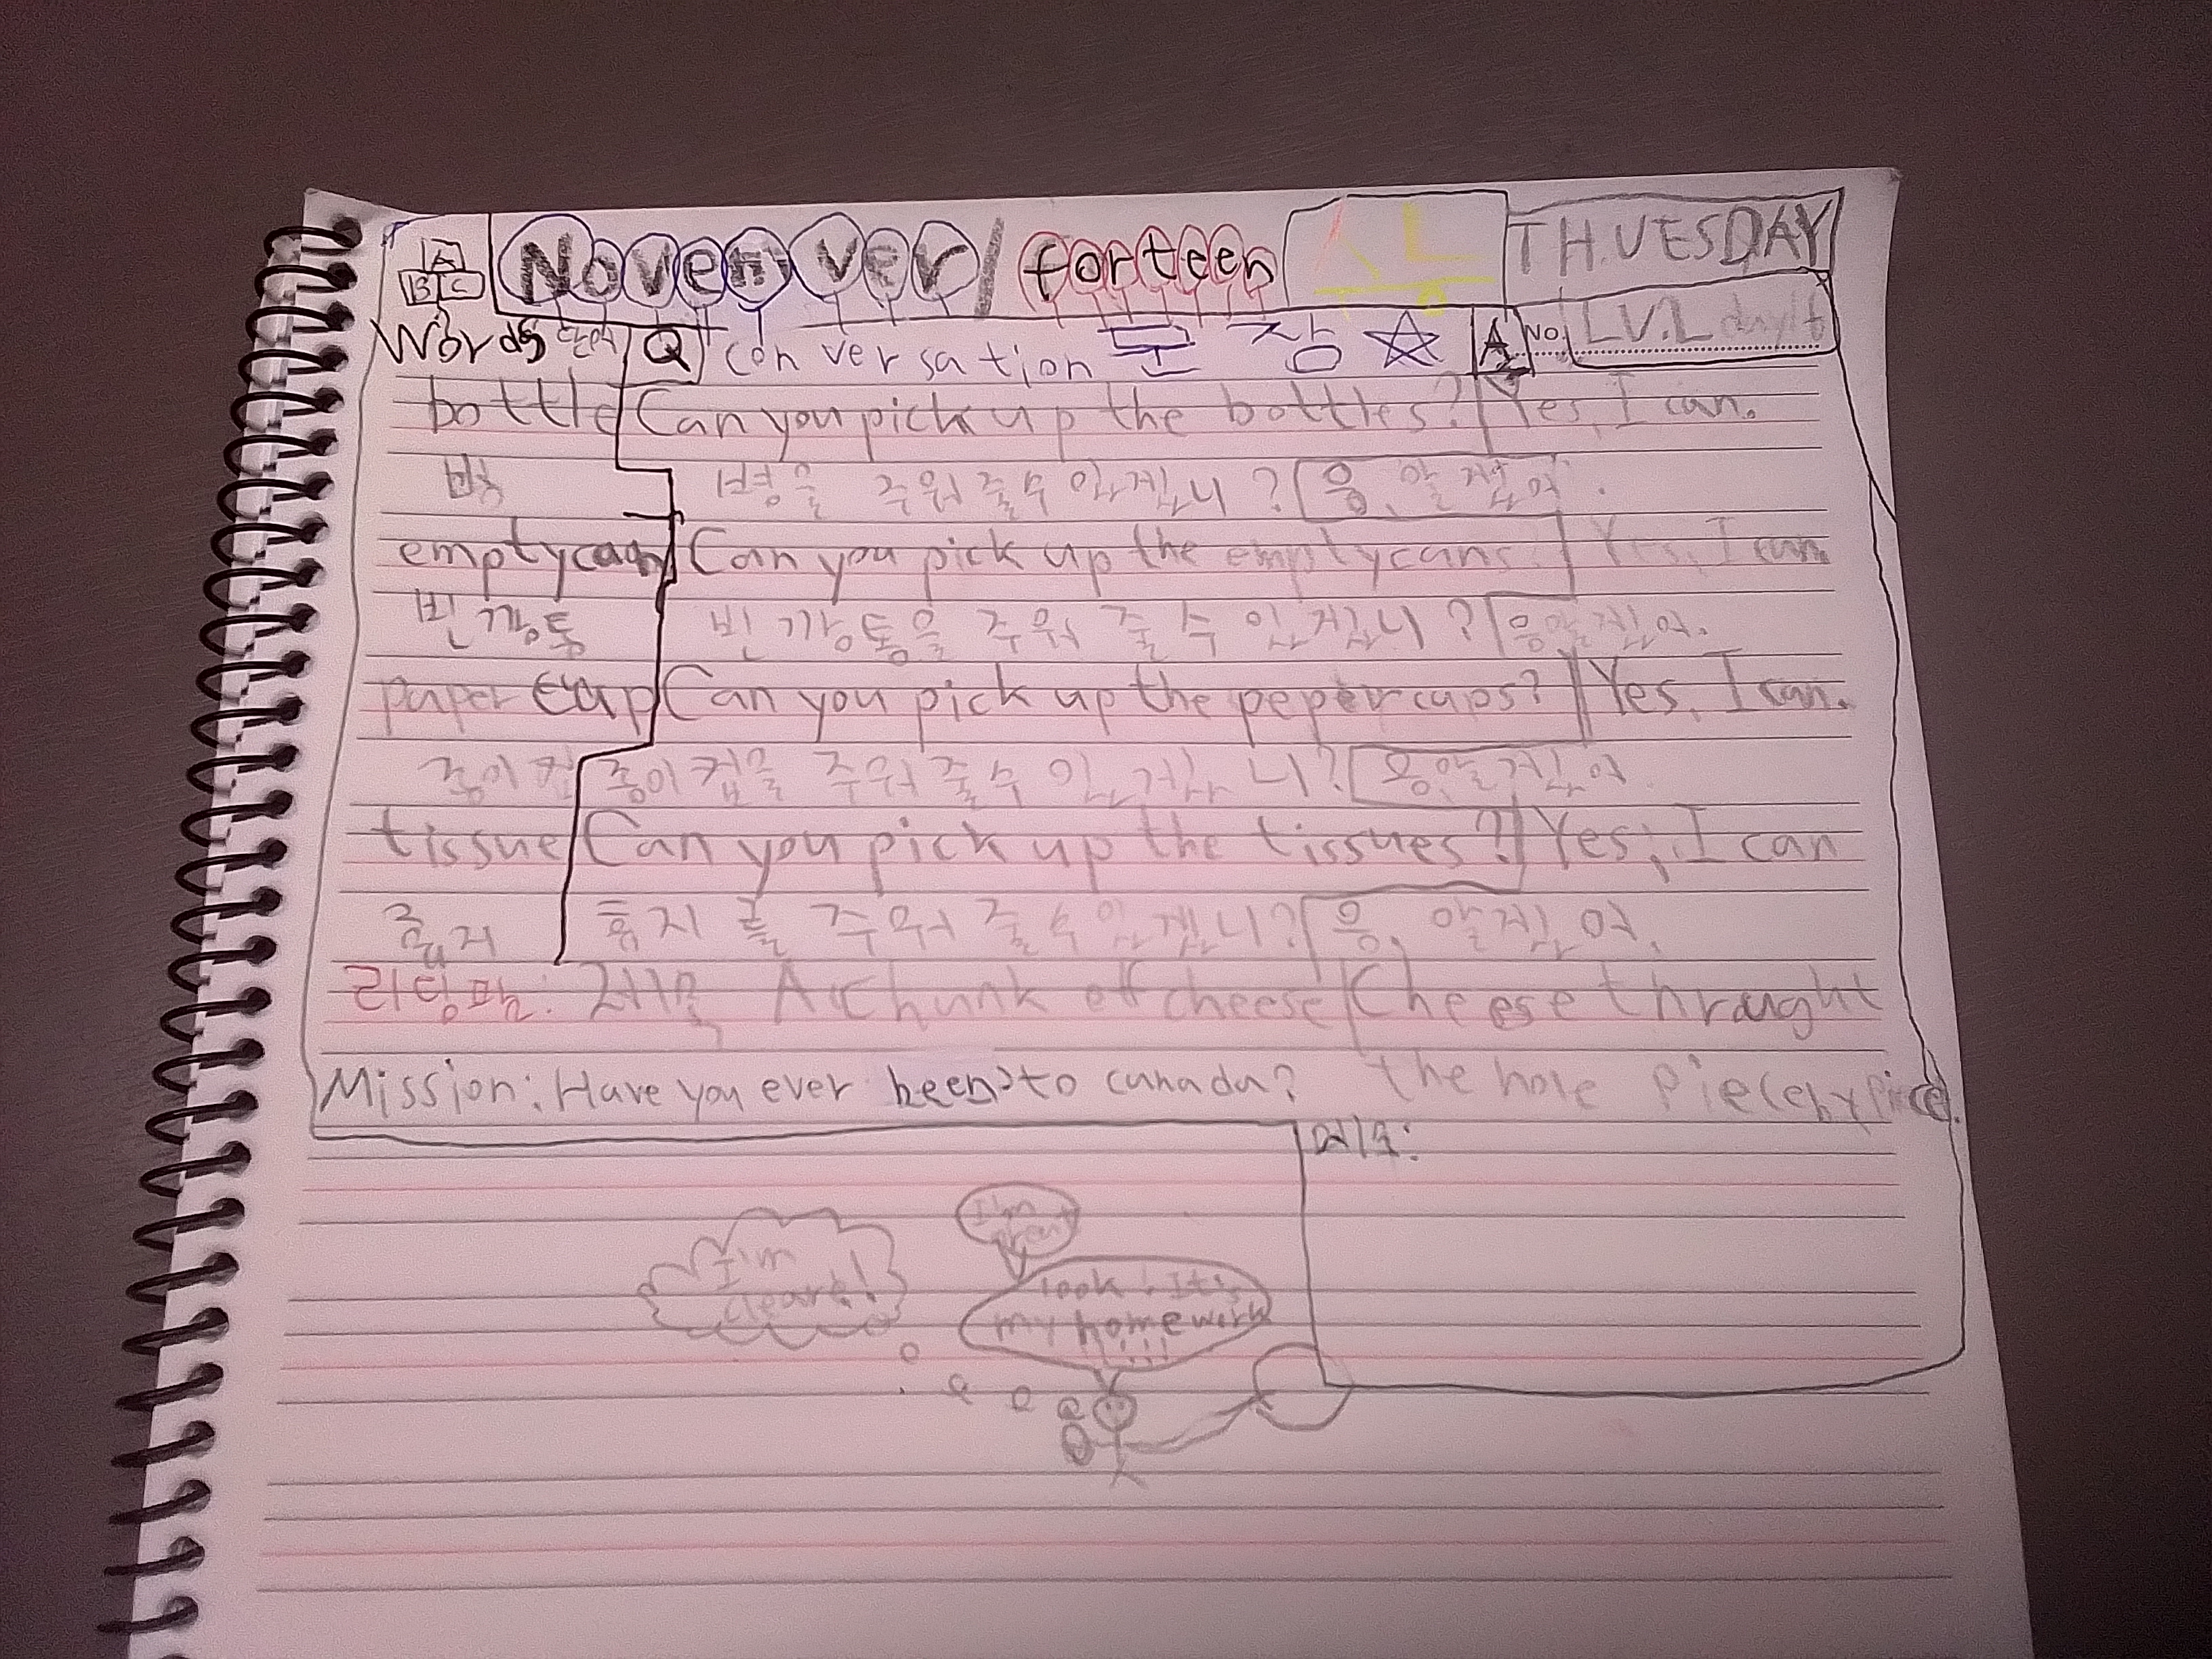 A
B C
Novenver / forteen THUESDAY
Words 단어 Q conversation 문장 A No. LV.L
bottle Can you pick up the bottles? Yes, I can.
병 병을 주워줄수 있겠니? 응, 알겠어.
emptycan Can you pick up the emptycans? Yes, I can.
빈 깡통 빈 깡통을 주워 줄 수 있겠니? 응 알겠어.
paper cup Can you pick up the pepercups? Yes, I can.
종이컵 종이컵을 주워줄수 있겠니? 응, 알겠어.
tissue Can you pick up the tissues? Yes, I can
휴지 휴지를 주워 줄수 있겠니? 응, 알겠어.
리딩펜: A chunk of cheese / Cheese throught
Mission: Have you ever been to canada? the hole piece by piece.
메모:
I'm
great
I'm
look! It's
my homework
!!!